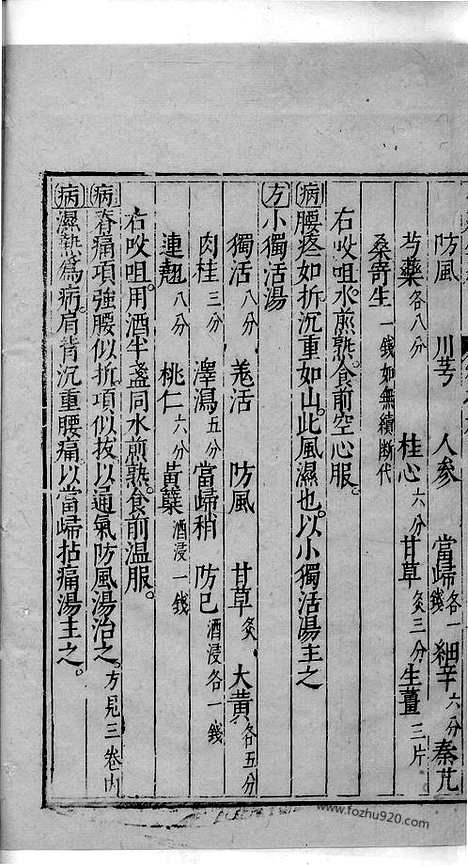 防風 川芎 人參 當歸各一錢 細辛六分 秦艽
芍藥各八分 桂心六分 甘草炙三分 生薑三片
桑寄生一錢如無續斷代
右㕮咀水煎熟。食前空心服。
病腰疼如折沉重如山。此風濕也。以小獨活湯主之
方小獨活湯
獨活八分 羗活 防風 甘草炙 大黃各五分
肉桂三分 澤瀉五分 當歸稍 防己酒浸各一錢
連翹八分 桃仁六分 黃蘗酒浸一錢
右㕮咀。用酒半盞同水煎熟。食前溫服。
病脊痛項強腰似折。項似拔以通氣防風湯治之。方見三卷內
病濕熱爲病。肩背沉重腰痛。以當歸拈痛湯主之。
www.fozhu920.com